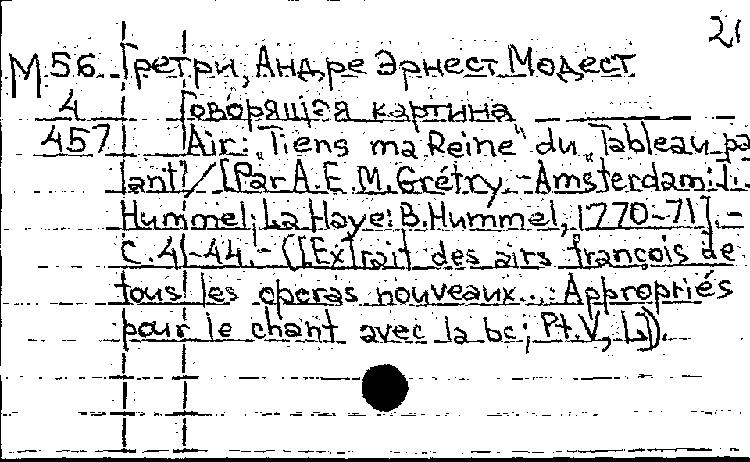 21
М 56 Гретри, Андре Эрнест Модест
4 Говорящая картина
457 Air: „Tiens ma Reine" du „Tableau pa
lant"/[Par A.E.M.Grétry.-Amsterdam:J.
Hummel; La Haye: B.Hummel, 1770-71].-
C.41-44.- ([Extrait des airs françois de
tous les operas nouveaux...: Appropriés
pour le chant avec la bc; Pt.V,